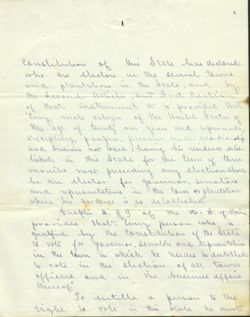 Constitution of this State has declared
who are electors in the several towns
and plantations in the State, and by
the Second Article and First Section
of that instrument it is provided that
Every male citizen of the United States of
the age of twenty one years and upwards
excepting paupers, persons under
and Indians not taxed, having his residence
in this State for the term of three
months next preceding any election shall
be an elector for governor, senators
and representatives in the town or plantation
where his residence is so established
Chapt. 3. § 9 of the R. S.
provides that every person who is
qualified by the Constitution of the State
to vote for governor, senators and representatives
in the town in which he resides is entitled
to vote in the election of all town
officers and in the business affairs
thereof"
To entitle a person to the
right to vote in this State he must